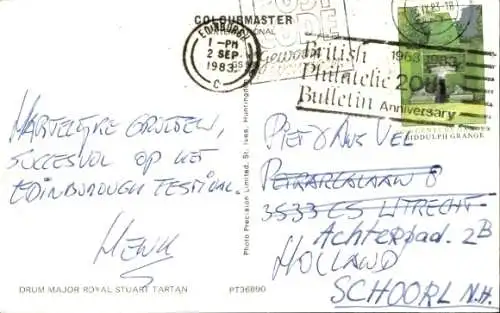 COLOURMASTER
INTERNATIONAL
EDINBURGH
1-PM
2 SEP
1983
C
POST
CODE
IX.83-18
British
Philatelic
Bulletin Anniversary
1963 1983
20th
BIDDULPH GRANGE
HARTELIJKE GROETEN,
SUCCESVOL OP HET
EDINBOROUGH FESTIVAL.
HENK
DRUM MAJOR ROYAL STUART TARTAN
PT36890
Photo Precision Limited, St. Ives, Huntingdon
PIET
PETRARCALAAN 8
3533 ES UTRECHT
Achterpad. 2B
HOLLAND
SCHOORL N.H.